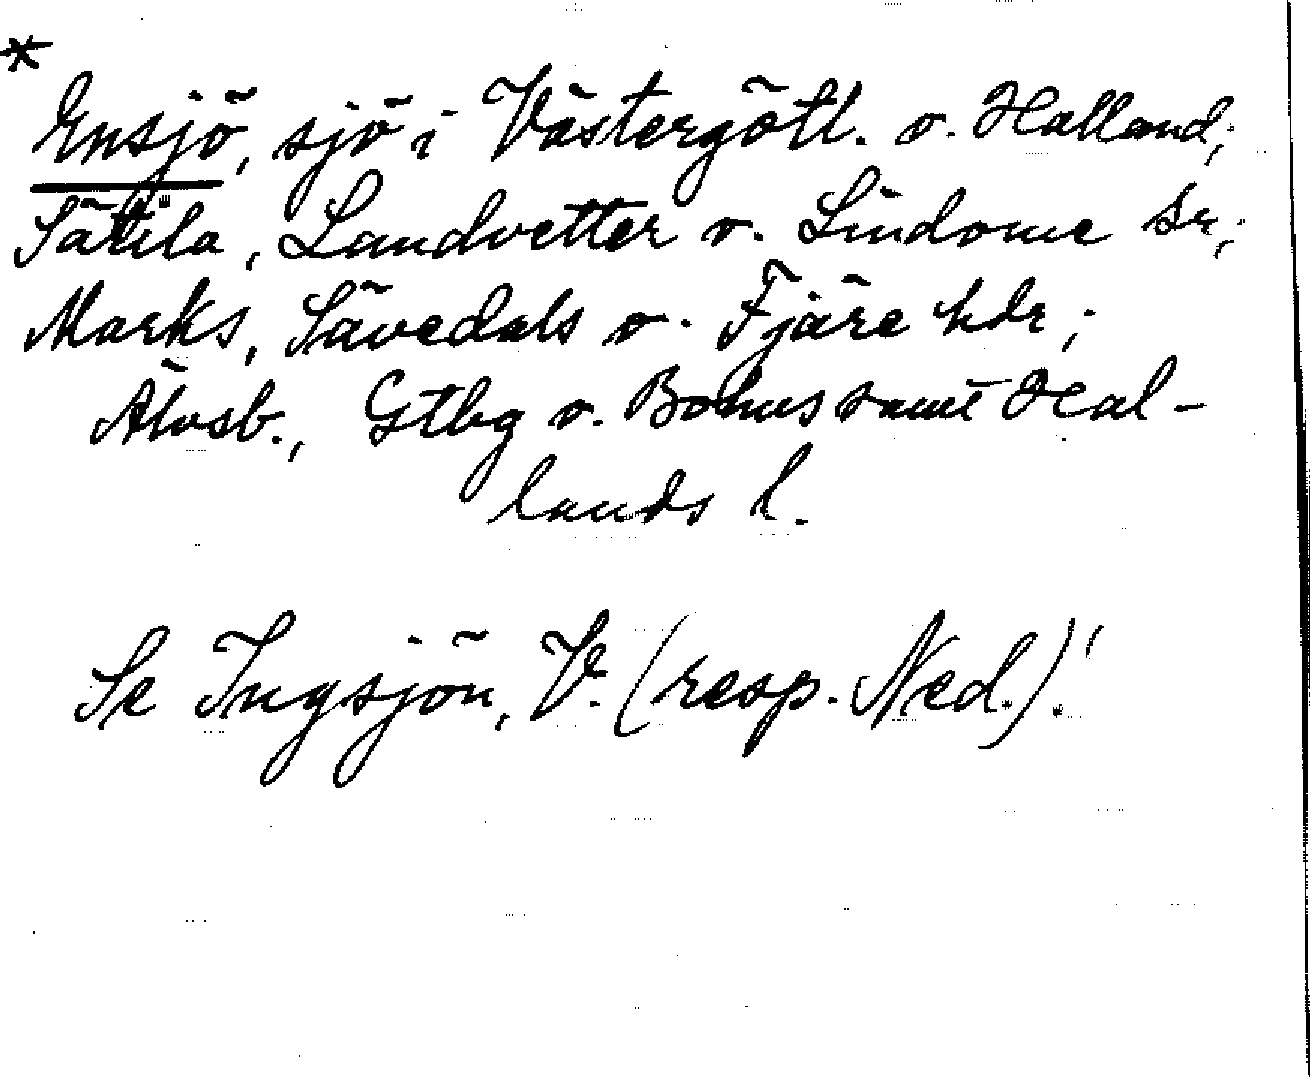 *
Ensjö, sjö i Västergötl. o. Halland;
Sätila, Landvetter o. Lindome sr;
Marks, Sävedals o. Fjäre hdr;
Älvsb., Gtbg o. Bohus samt Hal-
lands l.
Se Ingsjön, V. (resp. Ned.)!